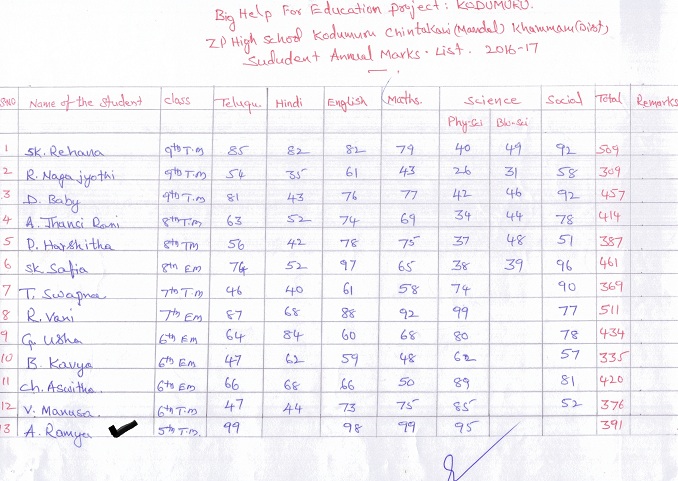 Big Help For Education project: KODUMURU.
ZP High school Kodumuru Chintakani (Mandal) Khammam (Dist)
Sududent Annual Marks. List. 2016-17
SNO Name of the Student class Telugu. Hindi English Maths. Science Social Total Remarks
Phy.sci Bio-sci
1 SK. Rehana 9th T.M 85 82 82 79 40 49 92 509
2 R. Naga jyothi 9th T.M 54 35 61 43 26 31 58 309
3 D. Baby 9th T.M 81 43 76 77 42 46 92 457
4 A. Jhanci Rani 8th T.M 63 52 74 69 34 44 78 414
5 P. Harshitha 8th TM 56 42 78 75 37 48 51 387
6 SK Safia 8th EM 74 52 97 65 38 39 96 461
7 T. Swapna 7th T.M 46 40 61 58 74 90 369
8 R. Vani 7th EM 87 68 88 92 99 77 511
9 G. Usha 6th EM 64 84 60 68 80 78 434
10 B. Kavya 6th EM 47 62 59 48 62 57 335
11 Ch. Aswitha. 6th EM 66 68 66 50 89 81 420
12 V. Manusa. 6th T.M 47 44 73 75 85 52 376
13 A. Ramya 5th T.M. 99 98 99 95 391